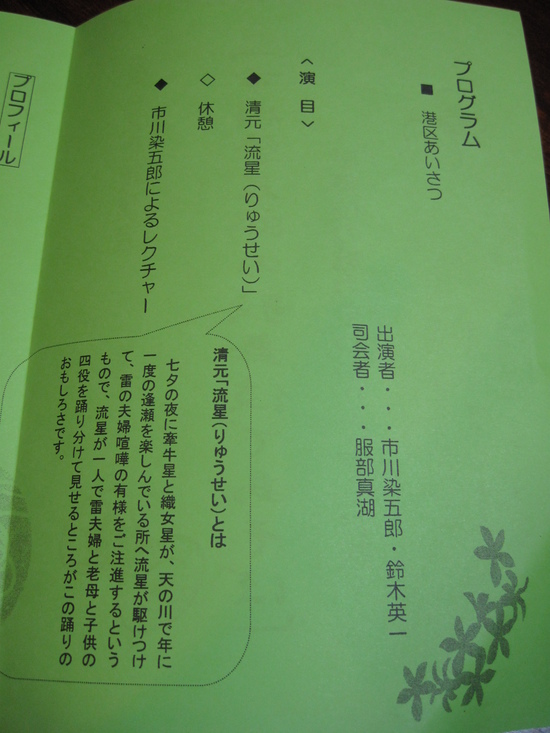 プログラム
■ 港区あいさつ
出演者・・・市川染五郎・鈴木英一
司会者・・・服部真湖
〈演目〉
◆ 清元「流星（りゅうせい）」
◇ 休憩
◆ 市川染五郎によるレクチャー
清元「流星（りゅうせい）とは
七夕の夜に牽牛星と織女星が、天の川で年に
一度の逢瀬を楽しんでいる所へ流星が駆けつけ
て、雷の夫婦喧嘩の有様をご注進するという
もので、流星が一人で雷夫婦と老母と子供の
四役を踊り分けて見せるところがこの踊りの
おもしろさです。
プロフィール